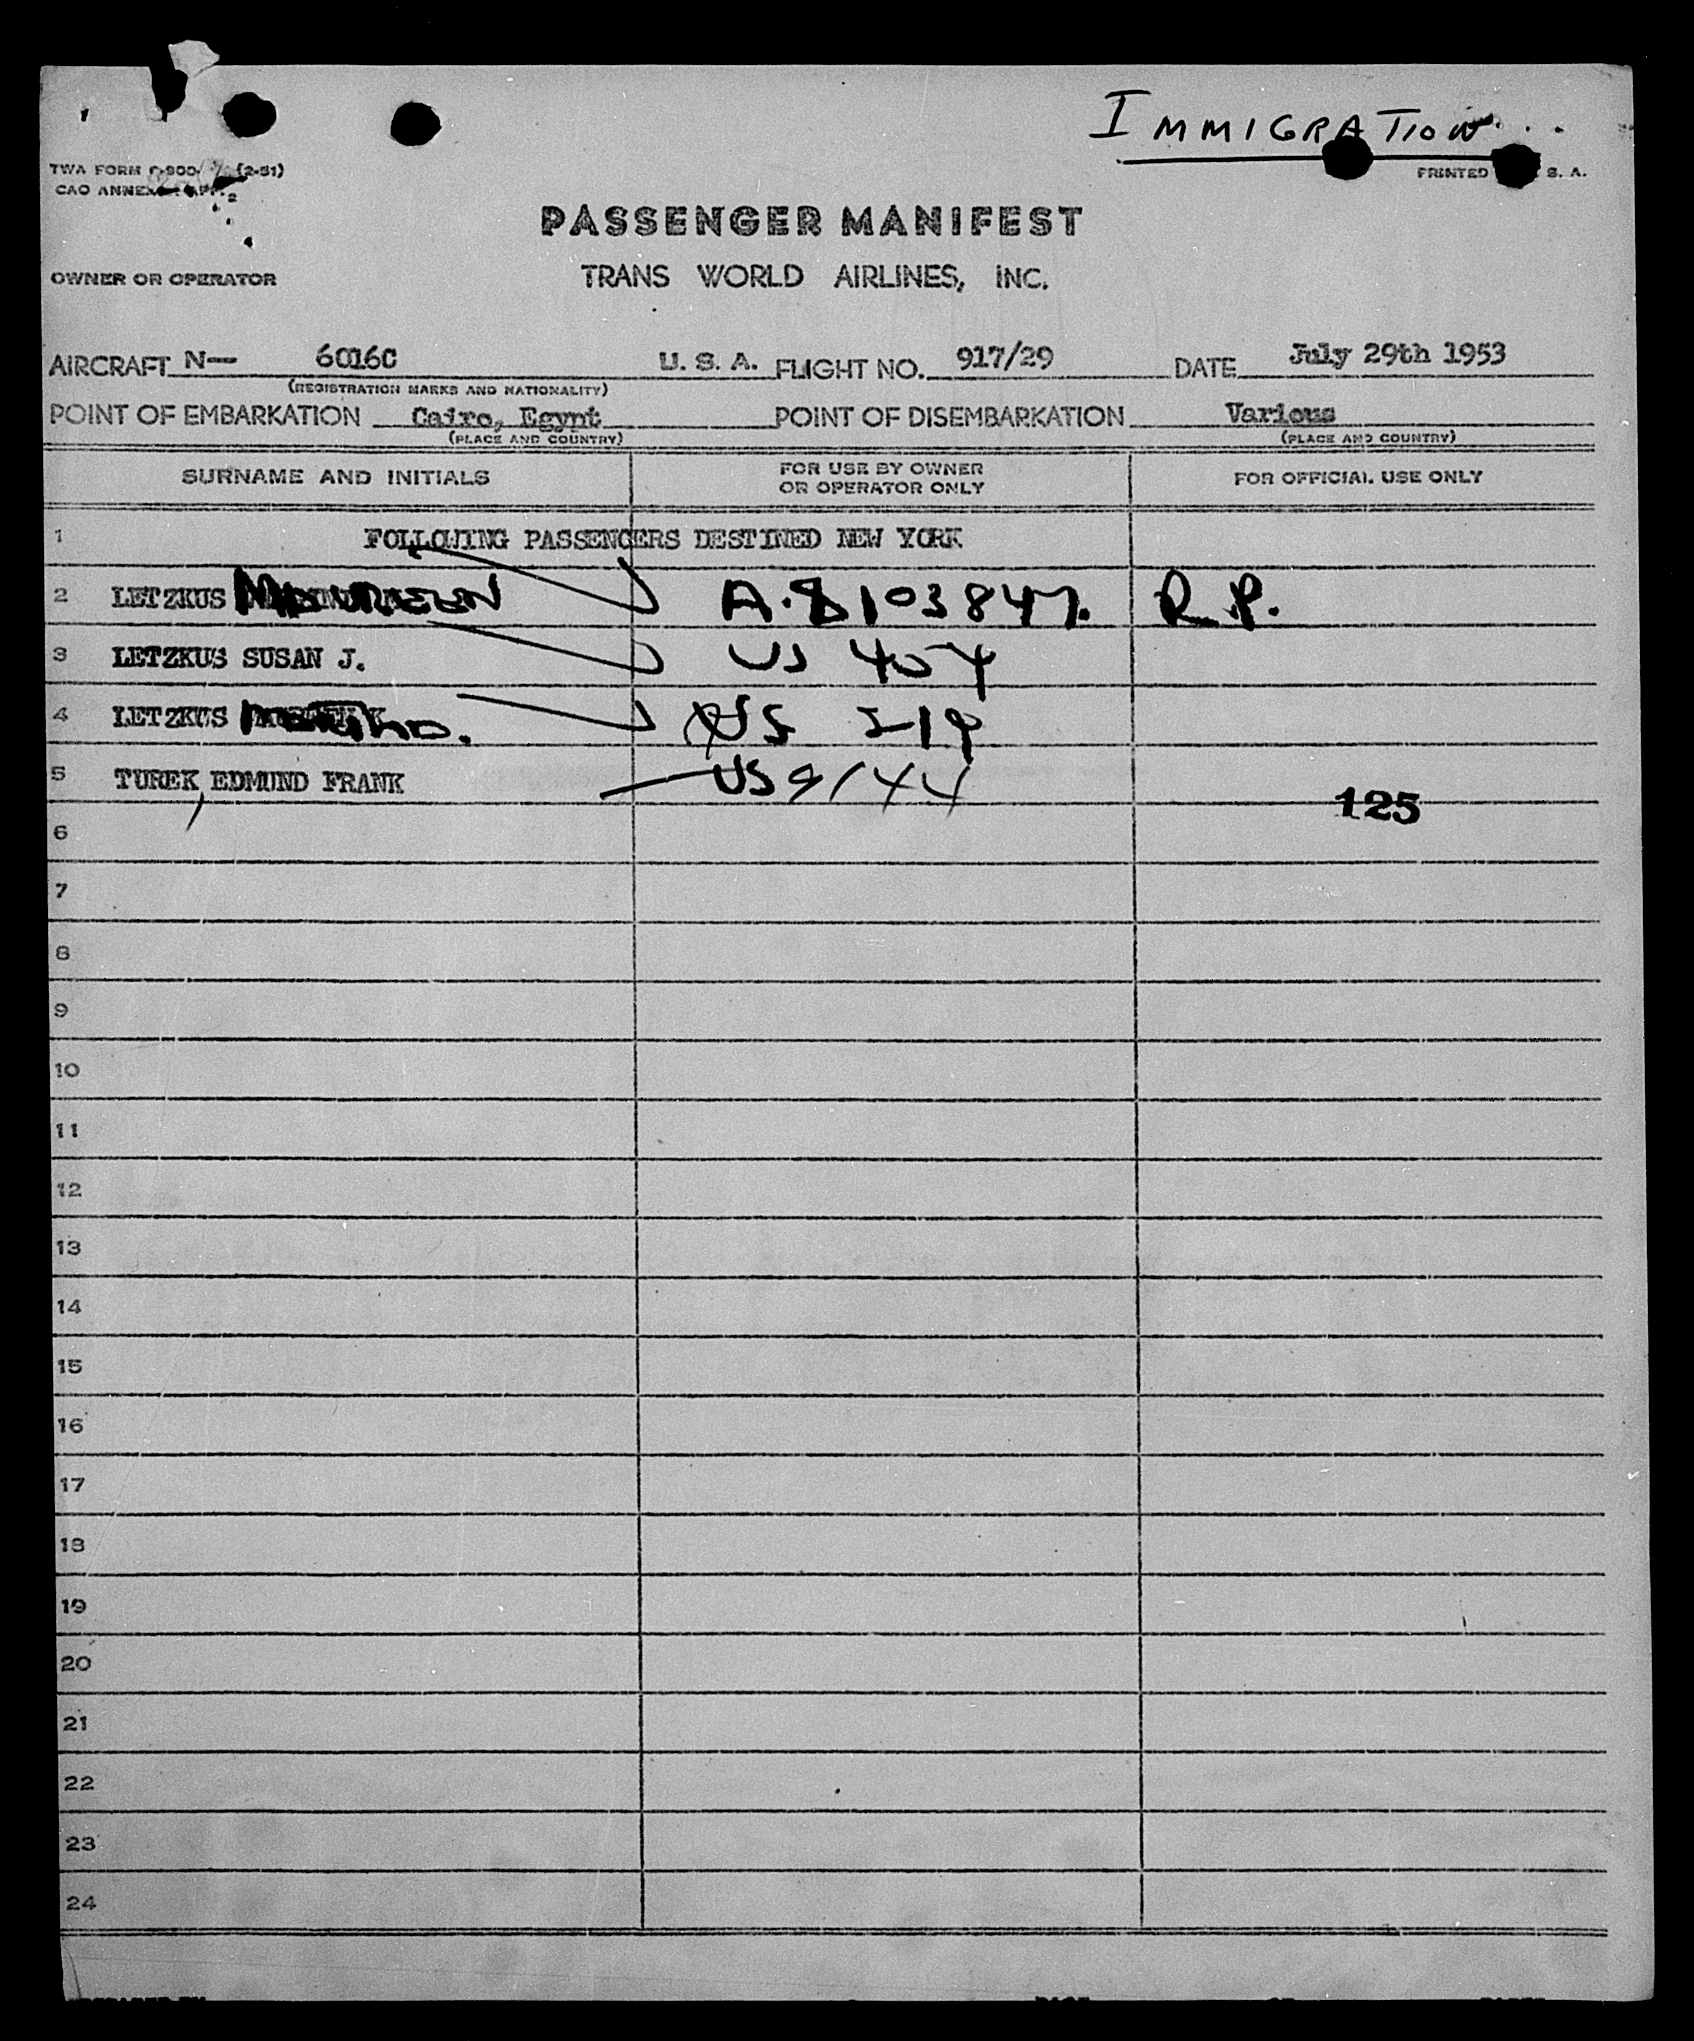 IMMIGRATION
TWA FORM (2-51)
CAO ANNEX
PRINTED S. A.
PASSENGER MANIFEST
OWNER OR OPERATOR TRANS WORLD AIRLINES, INC.
AIRCRAFT N— 6016C U. S. A. FLIGHT NO. 917/29 DATE July 29th 1953
(REGISTRATION MARKS AND NATIONALITY)
POINT OF EMBARKATION Cairo, Egypt POINT OF DISEMBARKATION Various
(PLACE AND COUNTRY) (PLACE AND COUNTRY)
SURNAME AND INITIALS FOR USE BY OWNER OR OPERATOR ONLY FOR OFFICIAL USE ONLY
1 FOLLOWING PASSENGERS DESTINED NEW YORK
2 LETZKUS MAUREEN A.8103847. R.P.
3 LETZKUS SUSAN J. US 404
4 LETZKUS US 219
5 TUREK, EDMUND FRANK US 9144
125
6
7
8
9
10
11
12
13
14
15
16
17
18
19
20
21
22
23
24